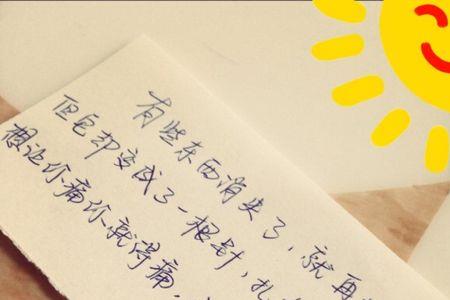 有些东西消失了，就再
但它却变成了一根针，扎
想让你痛你就得痛，